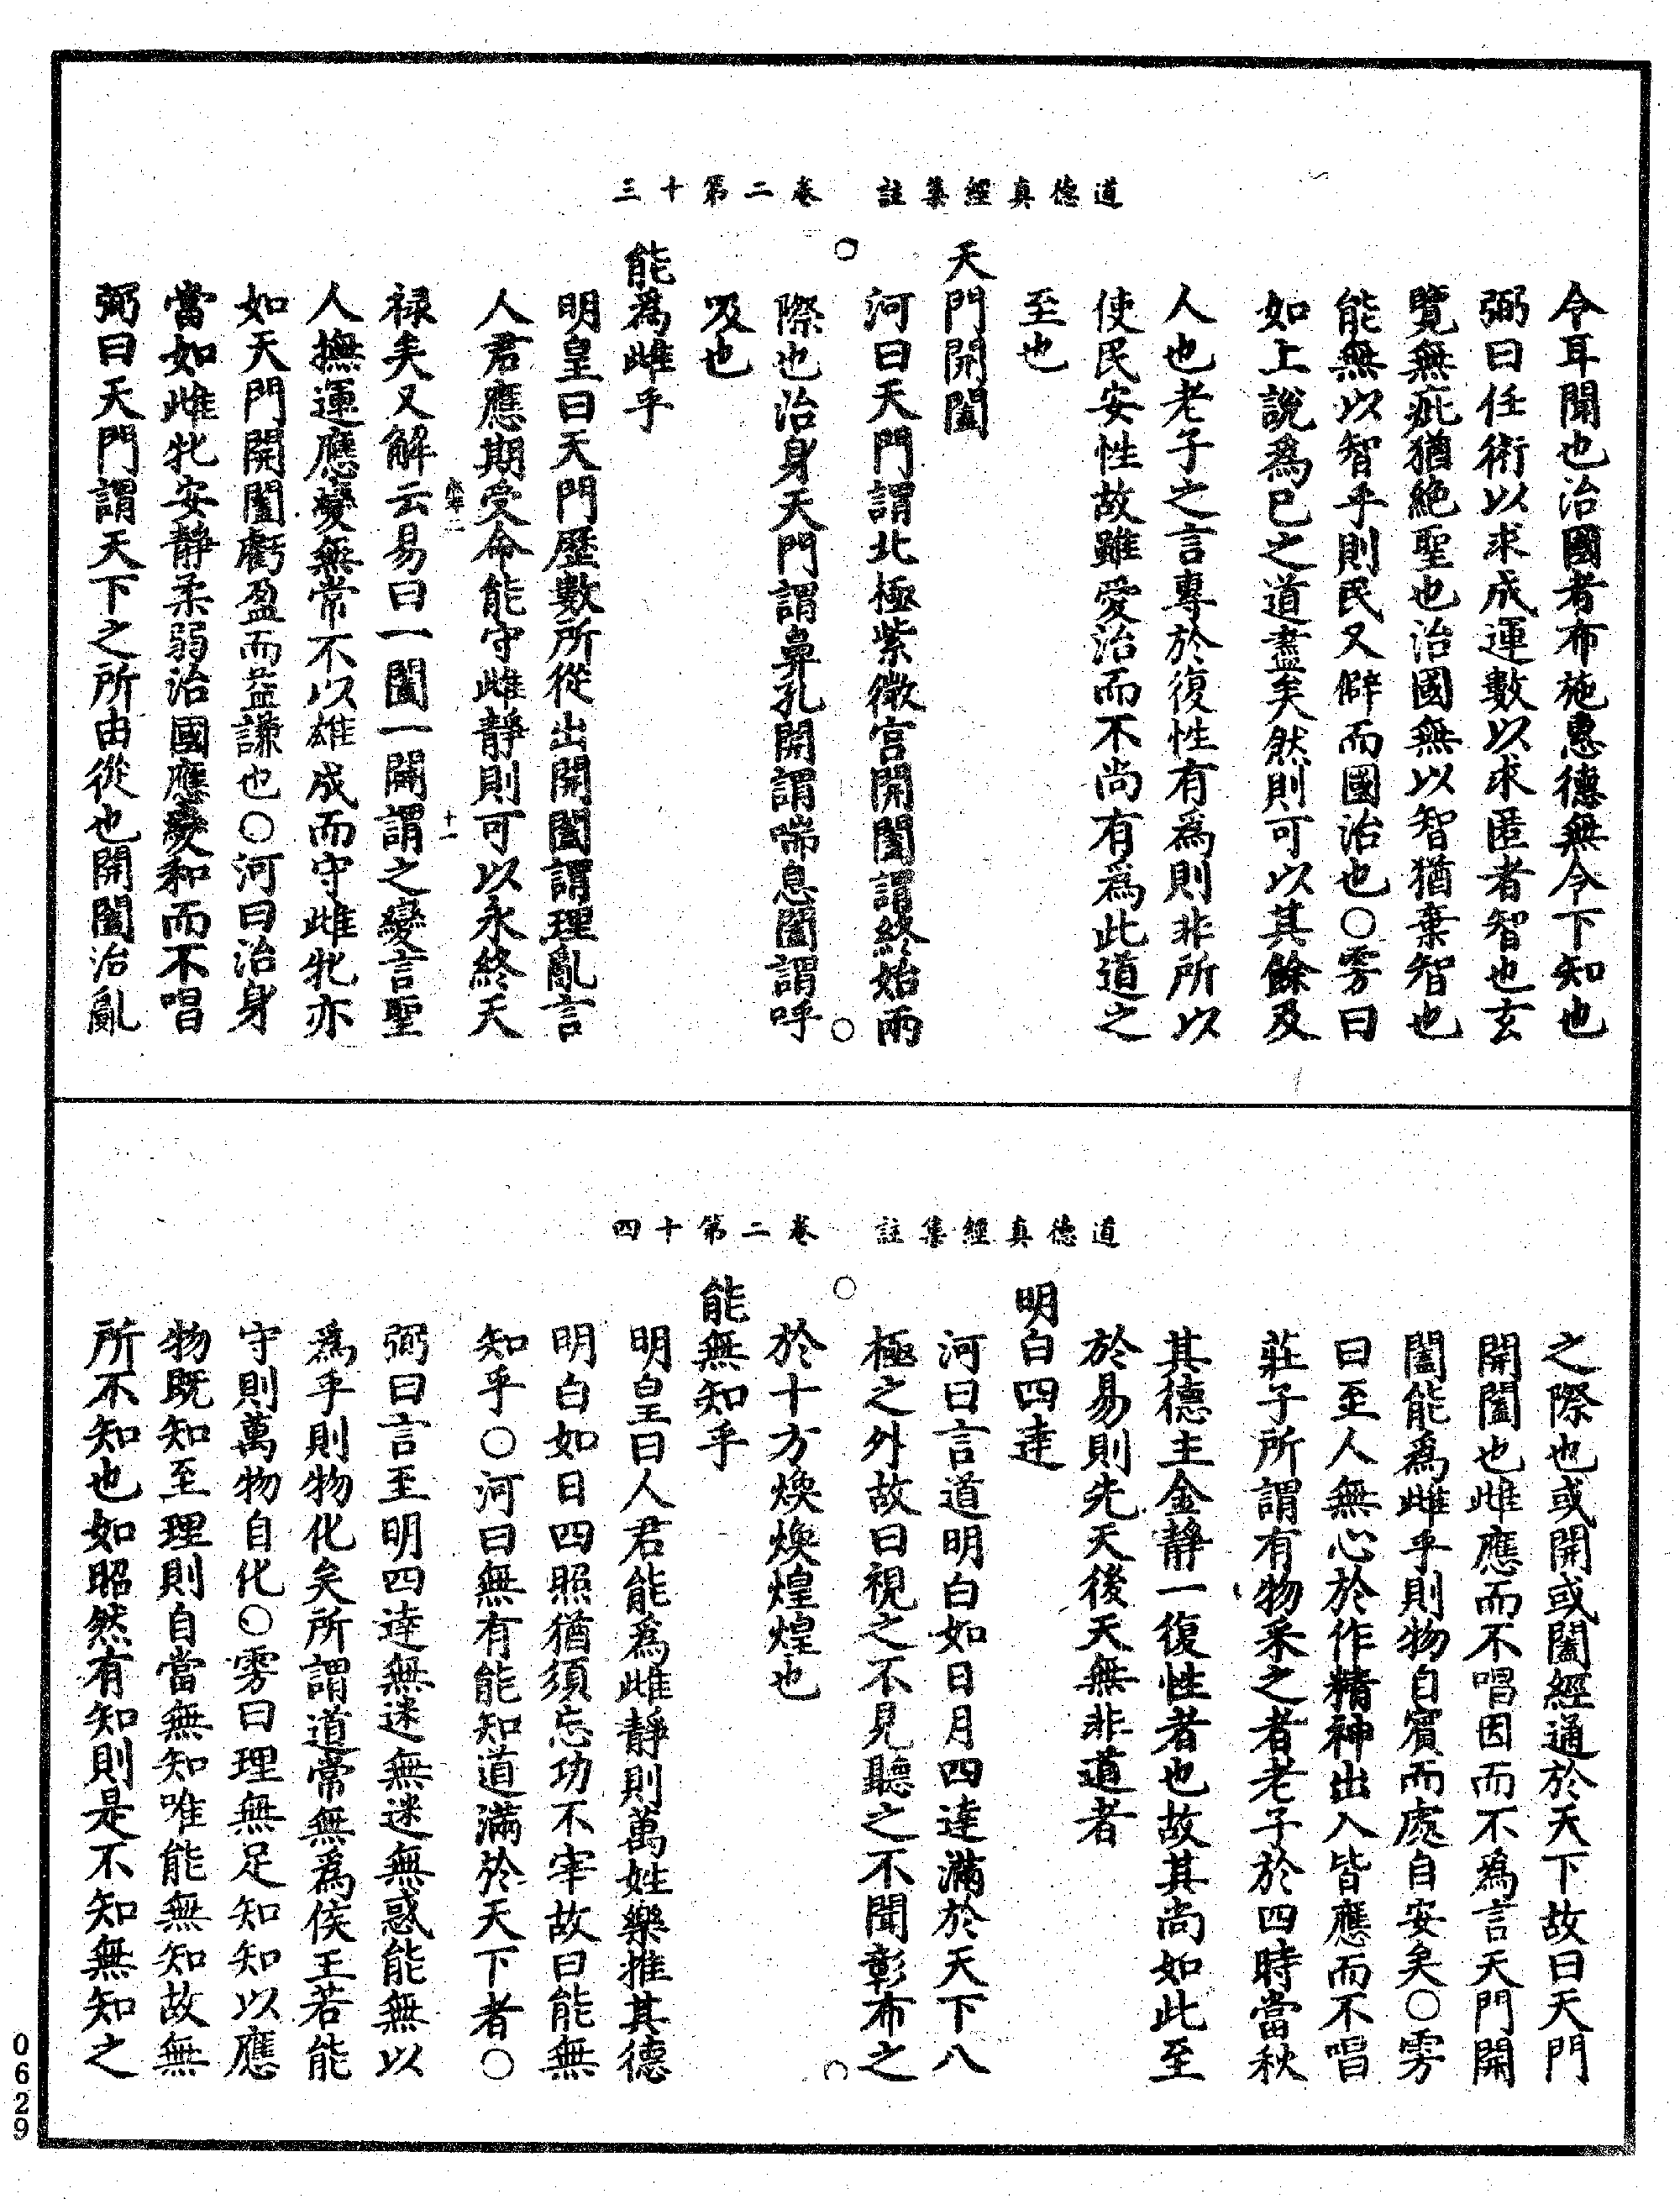 道德真經集註　卷二第十三
令耳聞也治國者布施惠德無令下知也
弼曰任術以求成運數以求匿者智也玄
覽無疵猶絕聖也治國無以智猶棄智也
能無以智乎則民又僻而國治也○雱曰
如上說爲已之道盡矣然則可以其餘及
人也老子之言專於復性有爲則非所以
使民安性故雖愛治而不尚有爲此道之
至也
天門開闔
河曰天門謂北極紫微宮開闔謂終始兩
際也治身天門謂鼻孔開謂喘息闔謂呼
吸也
能爲雌乎
明皇曰天門歷數所從出開闔謂理亂言
人君應期受命能守雌靜則可以永終天
祿矣又解云易曰一闔一開謂之變言聖
十一
人撫運應變無常不以雄成而守雌牝亦
如天門開闔虧盈而益謙也○河曰治身
當如雌牝安靜柔弱治國應變和而不唱
弼曰天門謂天下之所由從也開闔治亂
道德真經集註　卷二第十四
之際也或開或闔經通於天下故曰天門
開闔也雌應而不唱因而不爲言天門開
闔能爲雌乎則物自賓而處自安矣○雱
曰至人無心於作精神出入皆應而不唱
莊子所謂有物采之者老子於四時當秋
其德主金靜一復性者也故其尚如此至
於易則先天後天無非道者
明白四達
河曰言道明白如日月四達滿於天下八
極之外故曰視之不見聽之不聞彰布之
於十方煥煥煌煌也
能無知乎
明皇曰人君能爲雌靜則萬姓樂推其德
明白如日四照猶須忘功不宰故曰能無
知乎○河曰無有能知道滿於天下者○
弼曰言至明四達無迷無迷無惑能無以
爲乎則物化矣所謂道常無爲侯王若能
守則萬物自化○雱曰理無足知知以應
物既知至理則自當無知唯能無知故無
所不知也如昭然有知則是不知無知之
0629